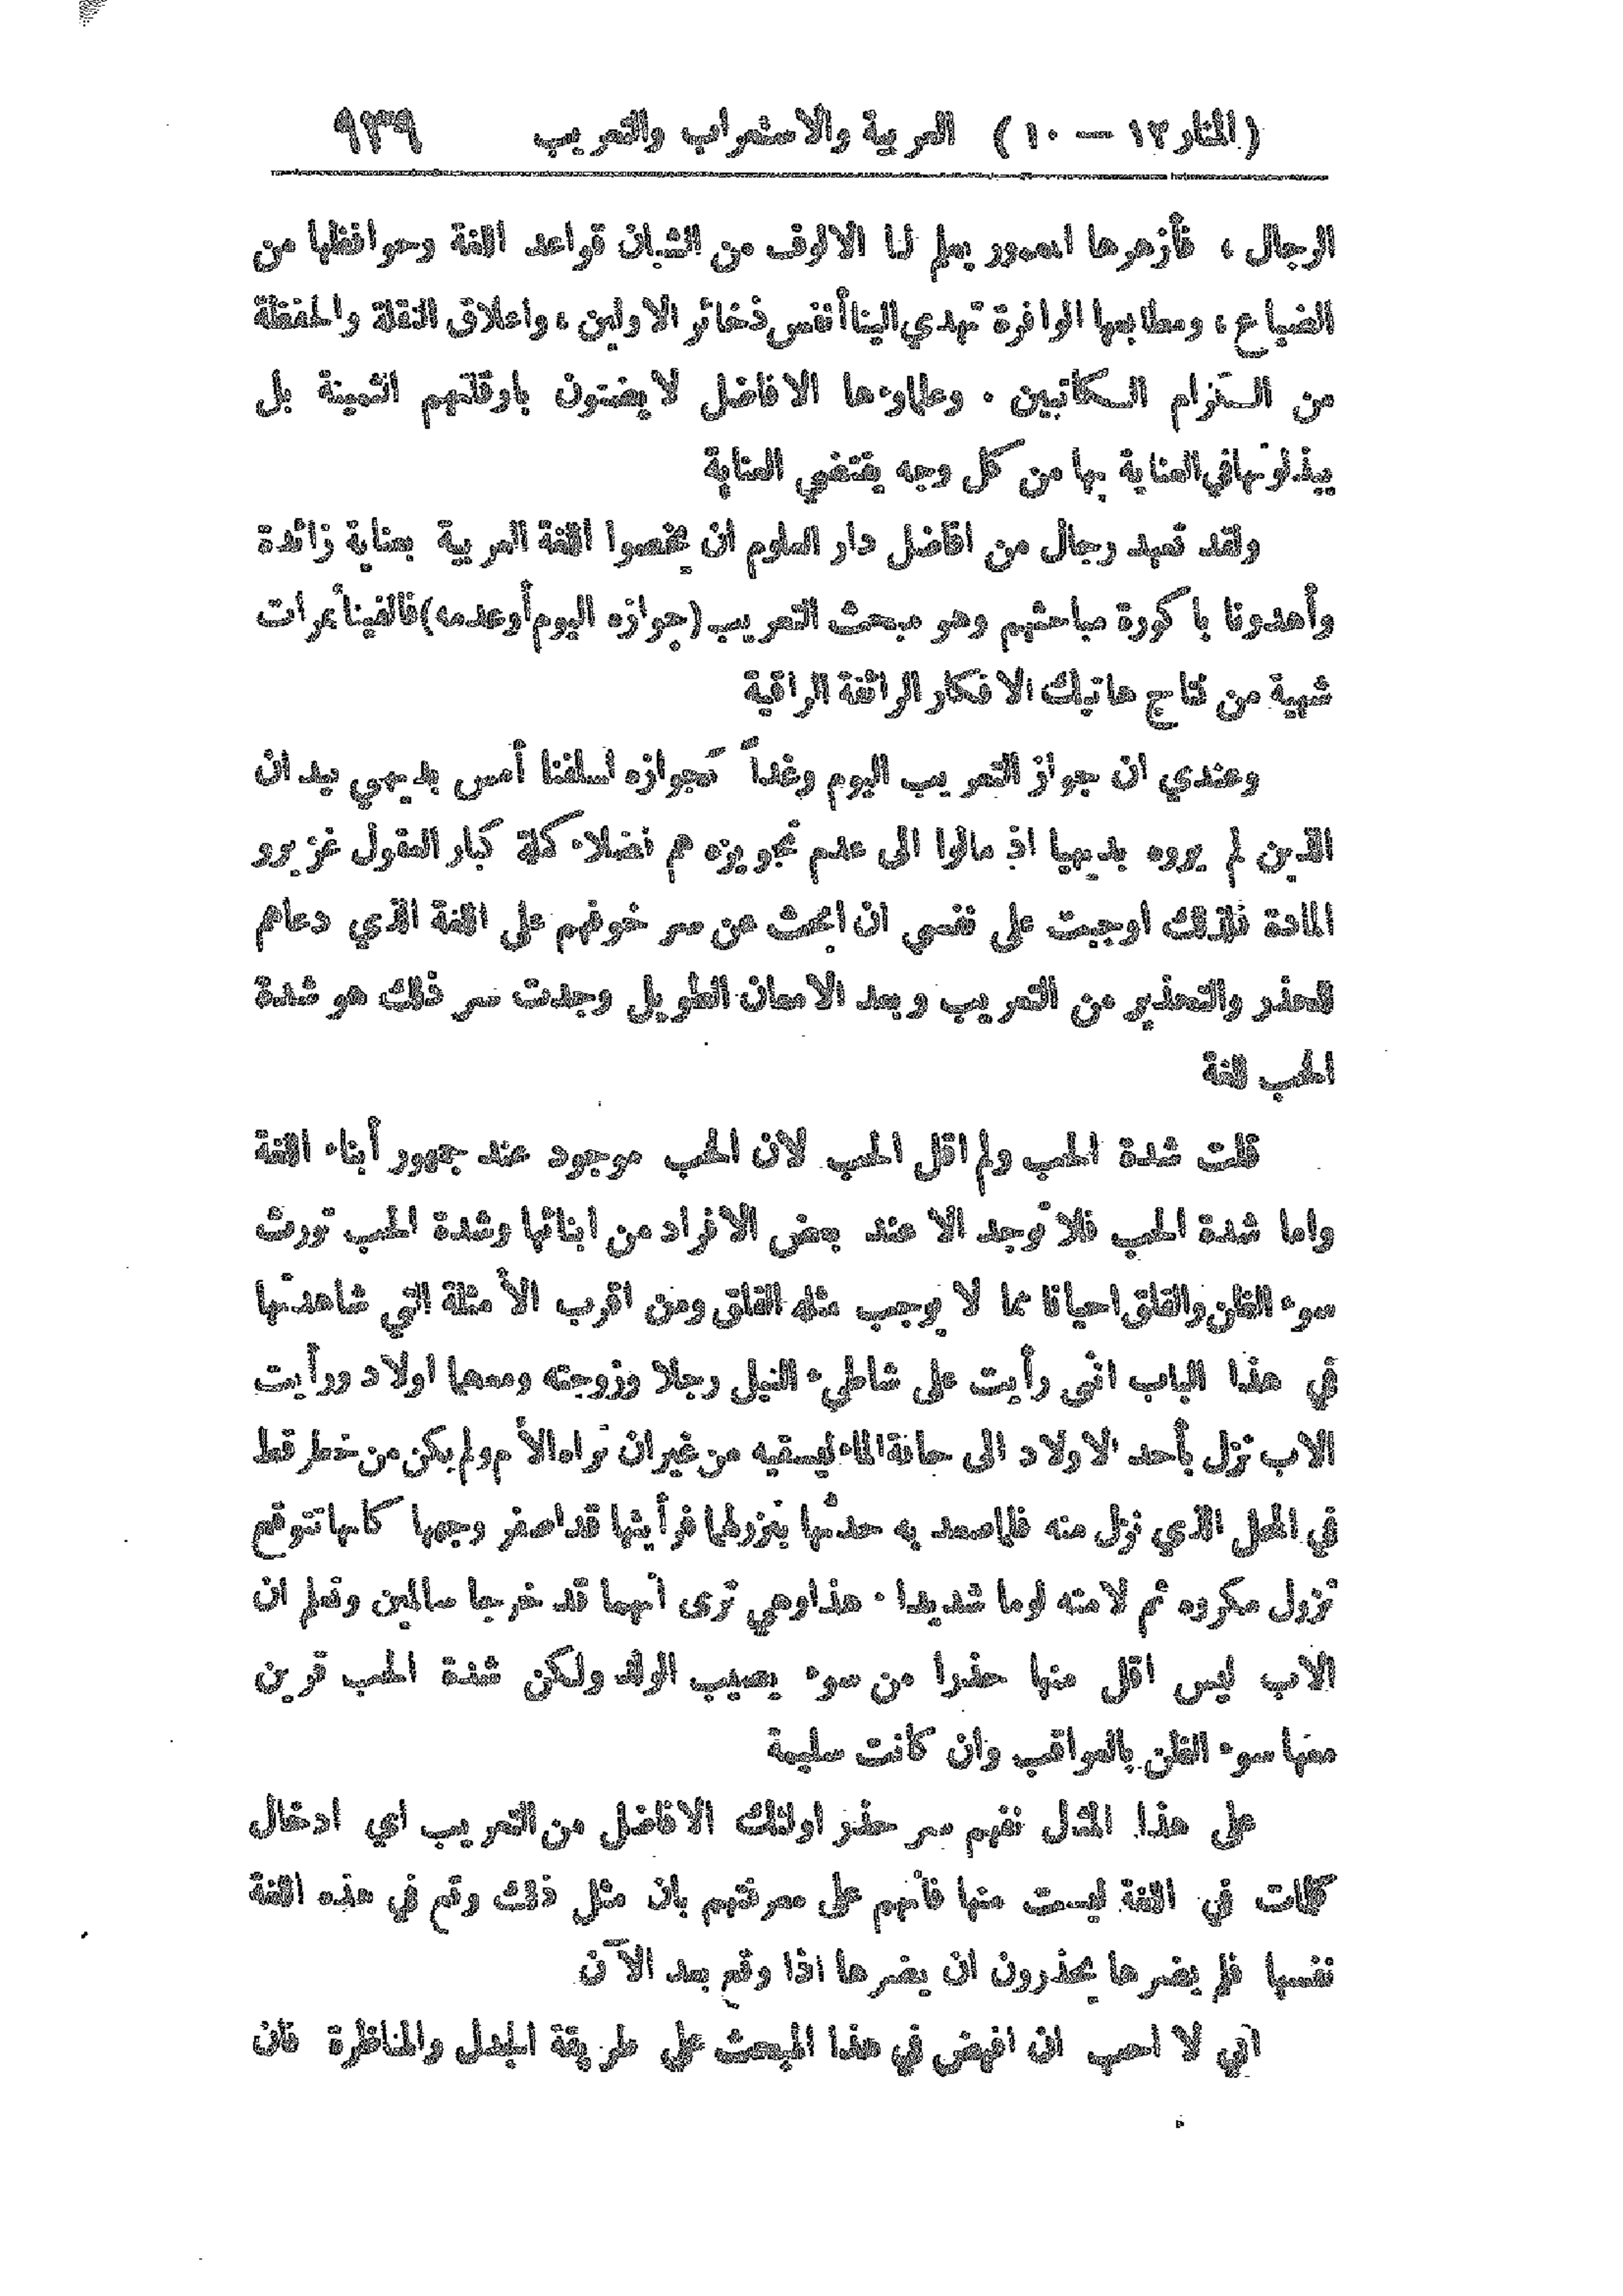 (المنار ١٢ — ١٠) العربية والاستعراب والتعريب ٩٣٩
الرجال ، فأزهرها المعمور يعلم لنا الالوف من الشبان قواعد اللغة وحوافظها من
الضياع ، ومطابعها الوافرة تهدي الينا أنفس ذخائر الاولين ، واعلاق النقلة والحفظة
من الكرام الكاتبين . وعلماؤها الافاضل لا يضنون باوقاتهم الثمينة بل
يبذلونها في العناية بها من كل وجه يقتضي العناية
ولقد تعهد رجال من افاضل دار العلوم ان يخصوا اللغة العربية بعناية زائدة
وأهدونا باكورة مباحثهم وهو مبحث التعريب (جوازه اليوم أو عدمه) فالفينا ثمرات
شهية من نتاج هاتيك الافكار الرائقة الراقية
وعندي ان جواز التعريب اليوم وغداً كجوازه لسلفنا أمس بديهي بيد ان
الذين لم يروه بديهيا اذ مالوا الى عدم تجويزه هم فضلاء كملة كبار العقول غزيرو
المادة فلذلك اوجبت على نفسي ان ابحث عن سر خوفهم على اللغة الذي دعاهم
للحذر والتحذير من التعريب وبعد الامعان الطويل وجدت سر ذلك هو شدة
الحب للغة
قلت شدة الحب ولم اقل الحب لان الحب موجود عند جمهور أبناء اللغة
واما شدة الحب فلا توجد الا عند بعض الافراد من ابنائها وشدة الحب تورث
سوء الظن والقلق احيانا مما لا يوجب مثله القلق ومن اقرب الأمثلة التي شاهدتها
في هذا الباب اني رأيت على شاطىء النيل رجلا وزوجته ومعهما اولاد ورأيت
الاب نزل بأحد الاولاد الى حافة الماء ليسقيه من غير ان تراه الأم ولم يكن من خطر قط
في المحل الذي نزل منه فلما صعد به حدثها بنزولهما فرأيتها قد اصفر وجهها كأنها تتوقع
نزول مكروه ثم لامته لوما شديدا . هذا وهي ترى انهما قد خرجا سالمين وتعلم ان
الاب ليس اقل منها حذرا من سوء يصيب الولد ولكن شدة الحب قرين
معها سوء الظن بالعواقب وان كانت سليمة
على هذا المثل نفهم سر حذر اولئك الافاضل من التعريب اي ادخال
كلمات في اللغة ليست منها فانهم على معرفتهم بان مثل ذلك وقع في هذه اللغة
نفسها فلم يضرها يحذرون ان يضرها اذا وقع بعد الآن
اني لا احب ان انهض في هذا المبحث على طريقة الجدل والمناظرة فان